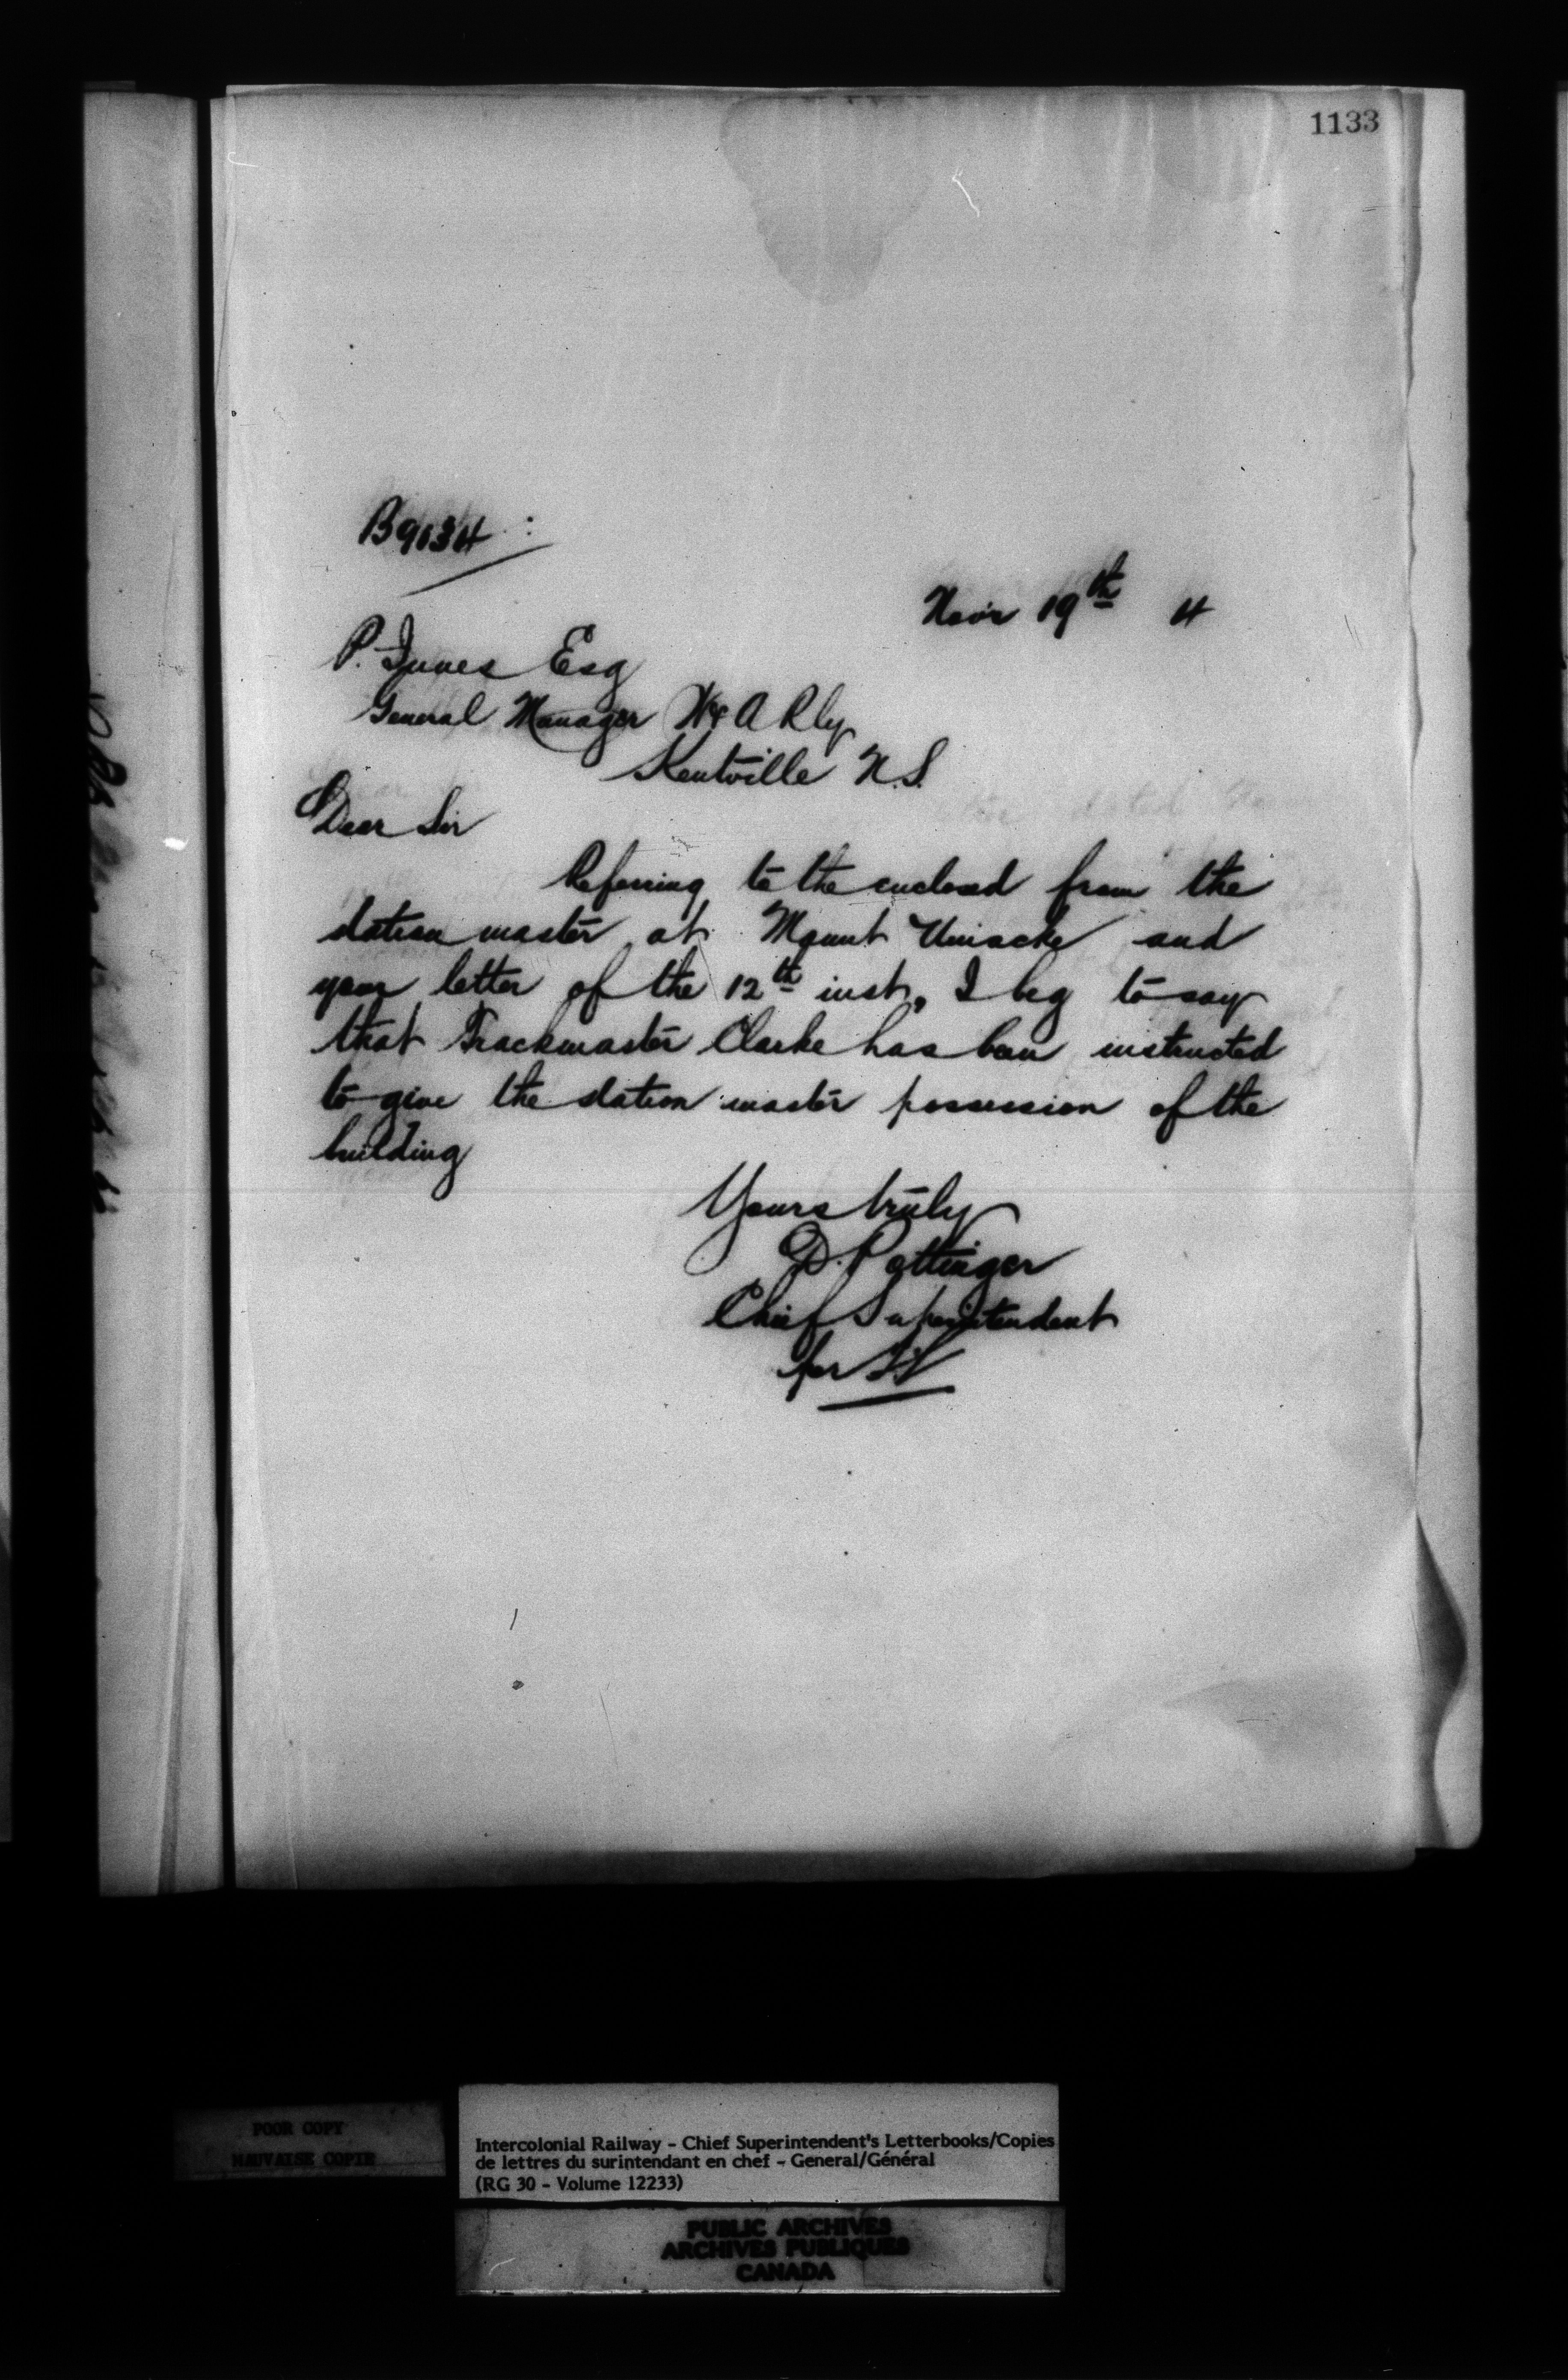 1133
B9134
Nov'r 19th 4
P. Innes Esq
General Manager W & A Rly
Kentville N.S.
Dear Sir
Referring to the enclosed from the
station master at Mount Uniacke and
your letter of the 12th inst, I beg to say
that Trackmaster Clarke has been instructed
to give the station master possession of the
building
Yours truly
D. Pottinger
Chief Superintendent
for
POOR COPY
MAUVAISE COPIE
Intercolonial Railway - Chief Superintendent's Letterbooks/Copies
de lettres du surintendant en chef - General/Général
(RG 30 - Volume 12233)
PUBLIC ARCHIVES
ARCHIVES PUBLIQUES
CANADA